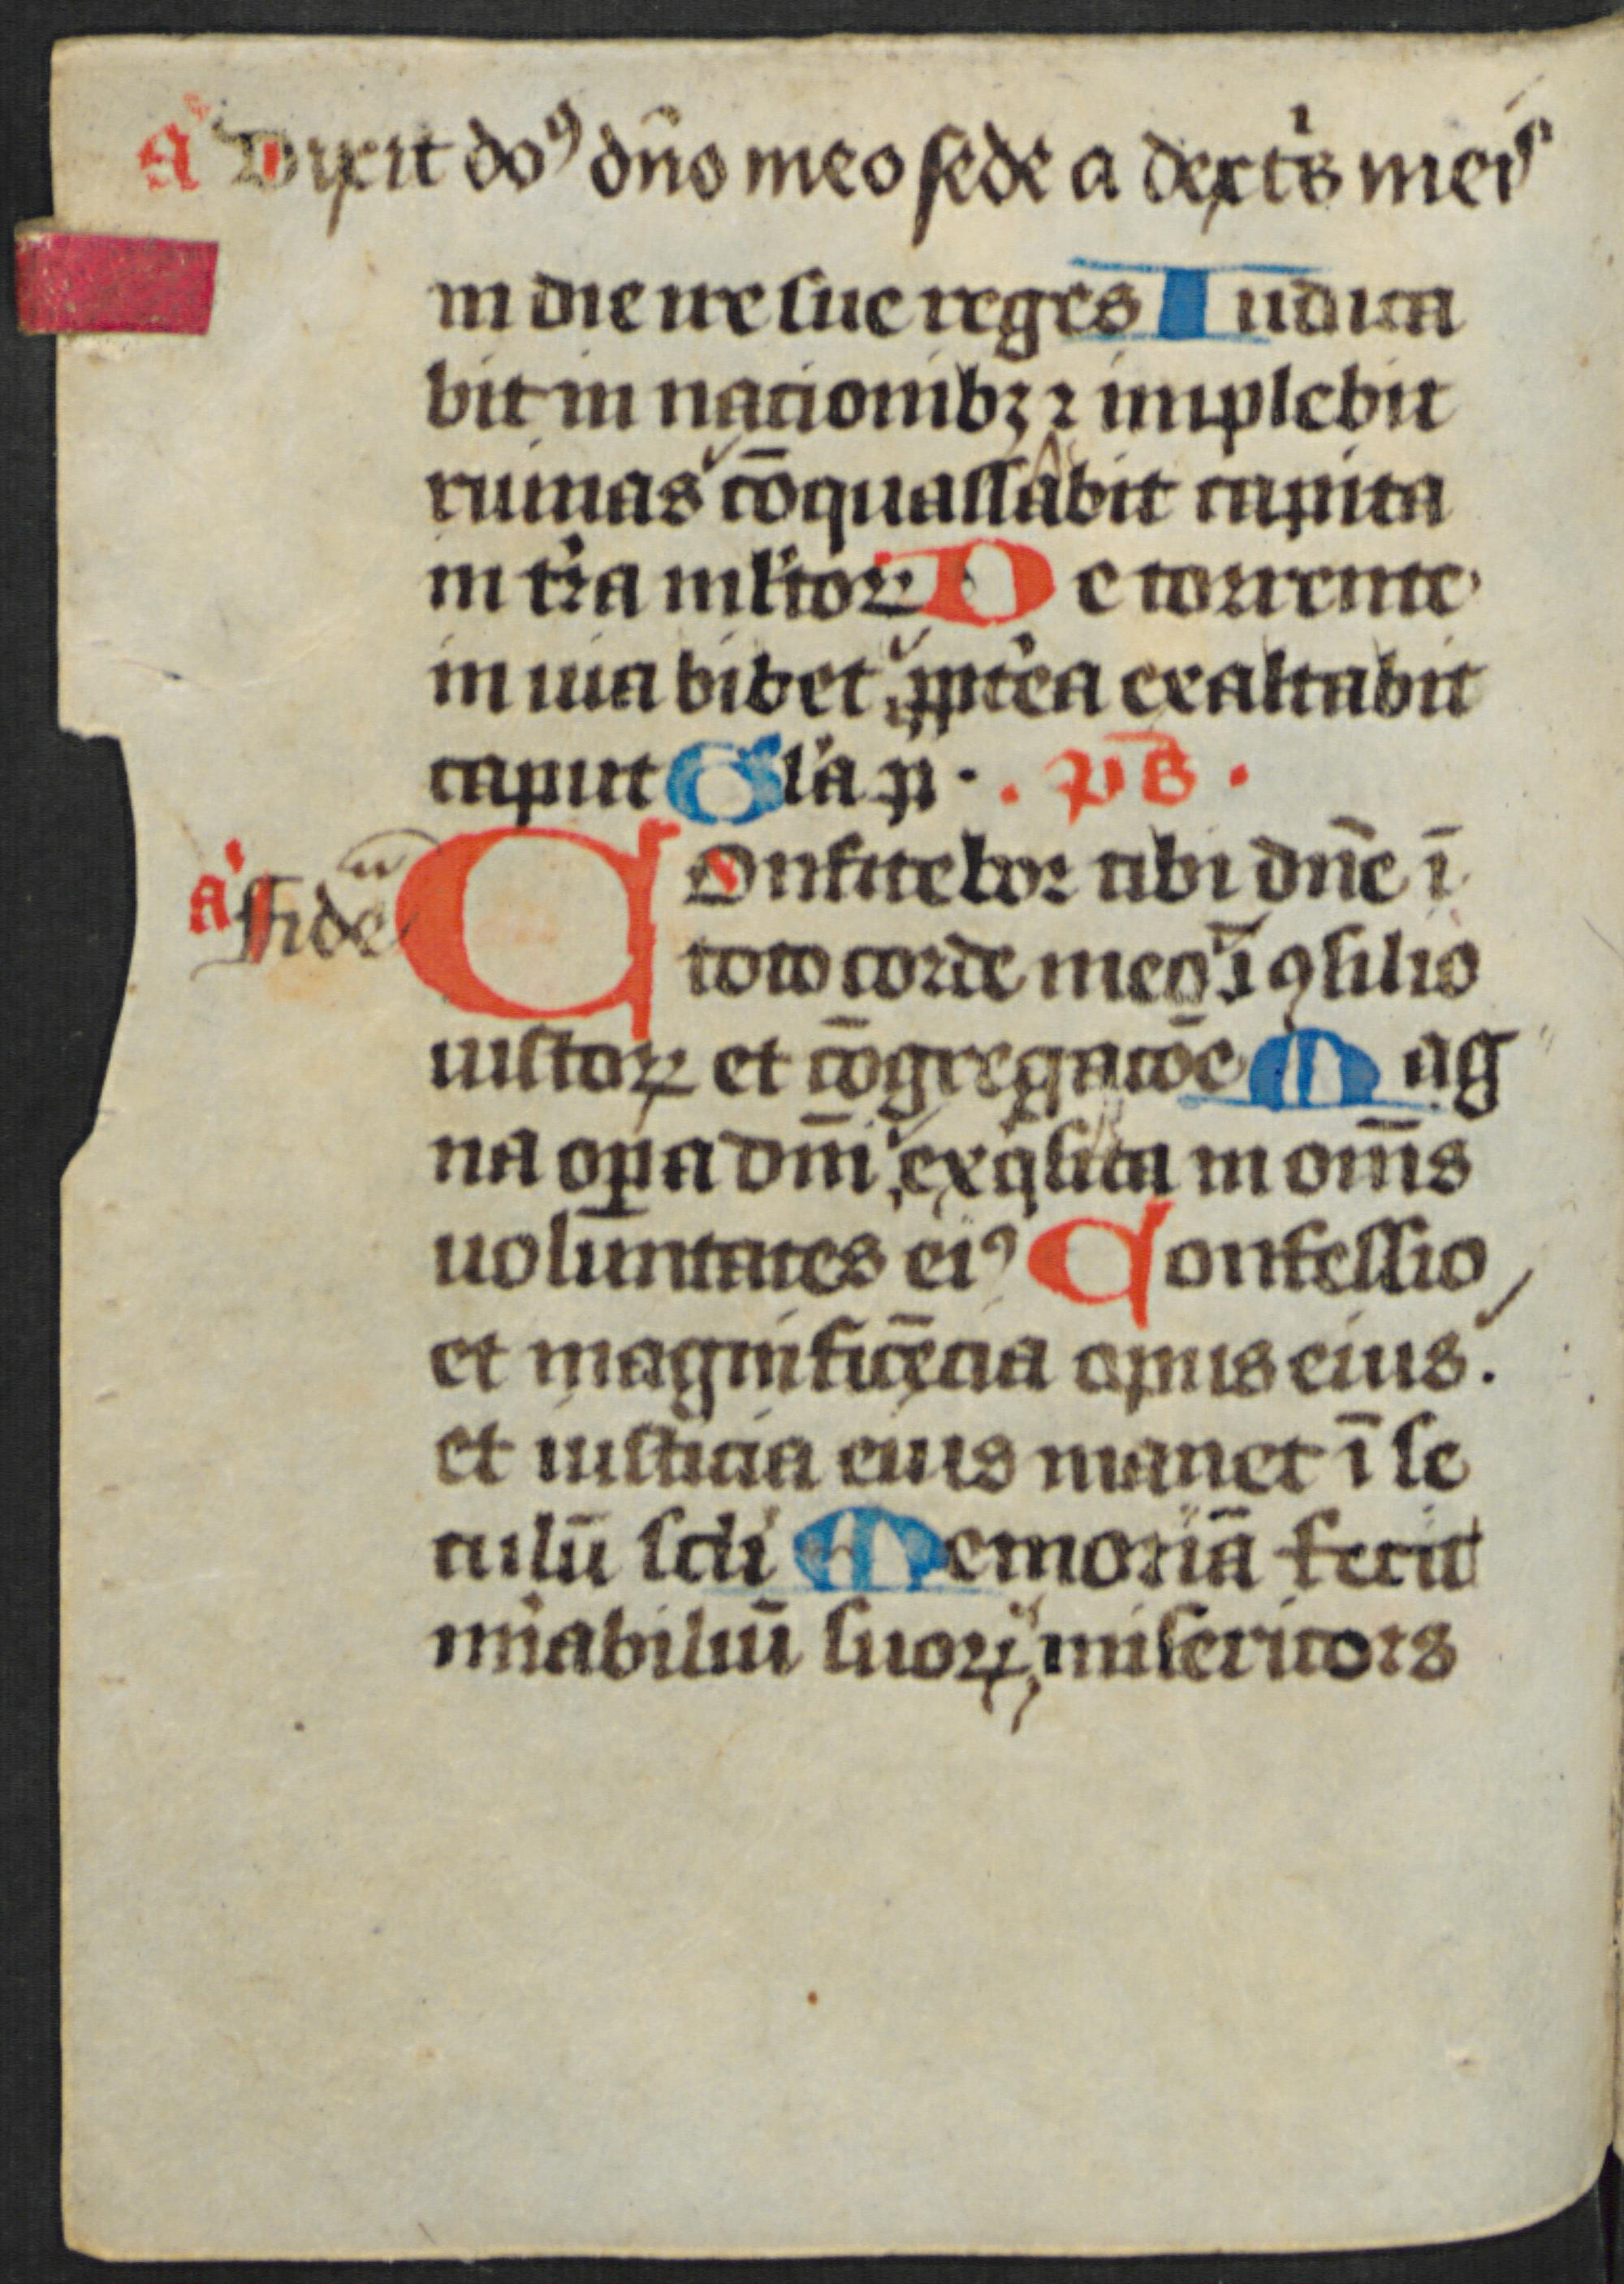 a̾ Dixit do⁹ dn̄o meo sede a dextͥs meis
in die ire sue reges Iudica
bit in nacionibꝫ ⁊ implebit
ruinas cō̄quassabit capita
in tr̾a ml̾toꝝ De torrente
in uia bibet ꝓpt̾ea exaltabit
caput Gl̾a p̄ · . p̄s .
a̾ ffidel̾
COnfitebor tibi dn̄e ī
toto corde meo ī ꝯsilio
iustoꝝ et cōgregacōe Mag
na oꝑa dn̄i exq̾sita in om̄s
uolūntates ei⁹ Confessio
et magnificēcia opus eius .
et iusticia eius manet ī se
culū scl̾i Memoriā fecit
mi̾abiliū suoꝝ misericors